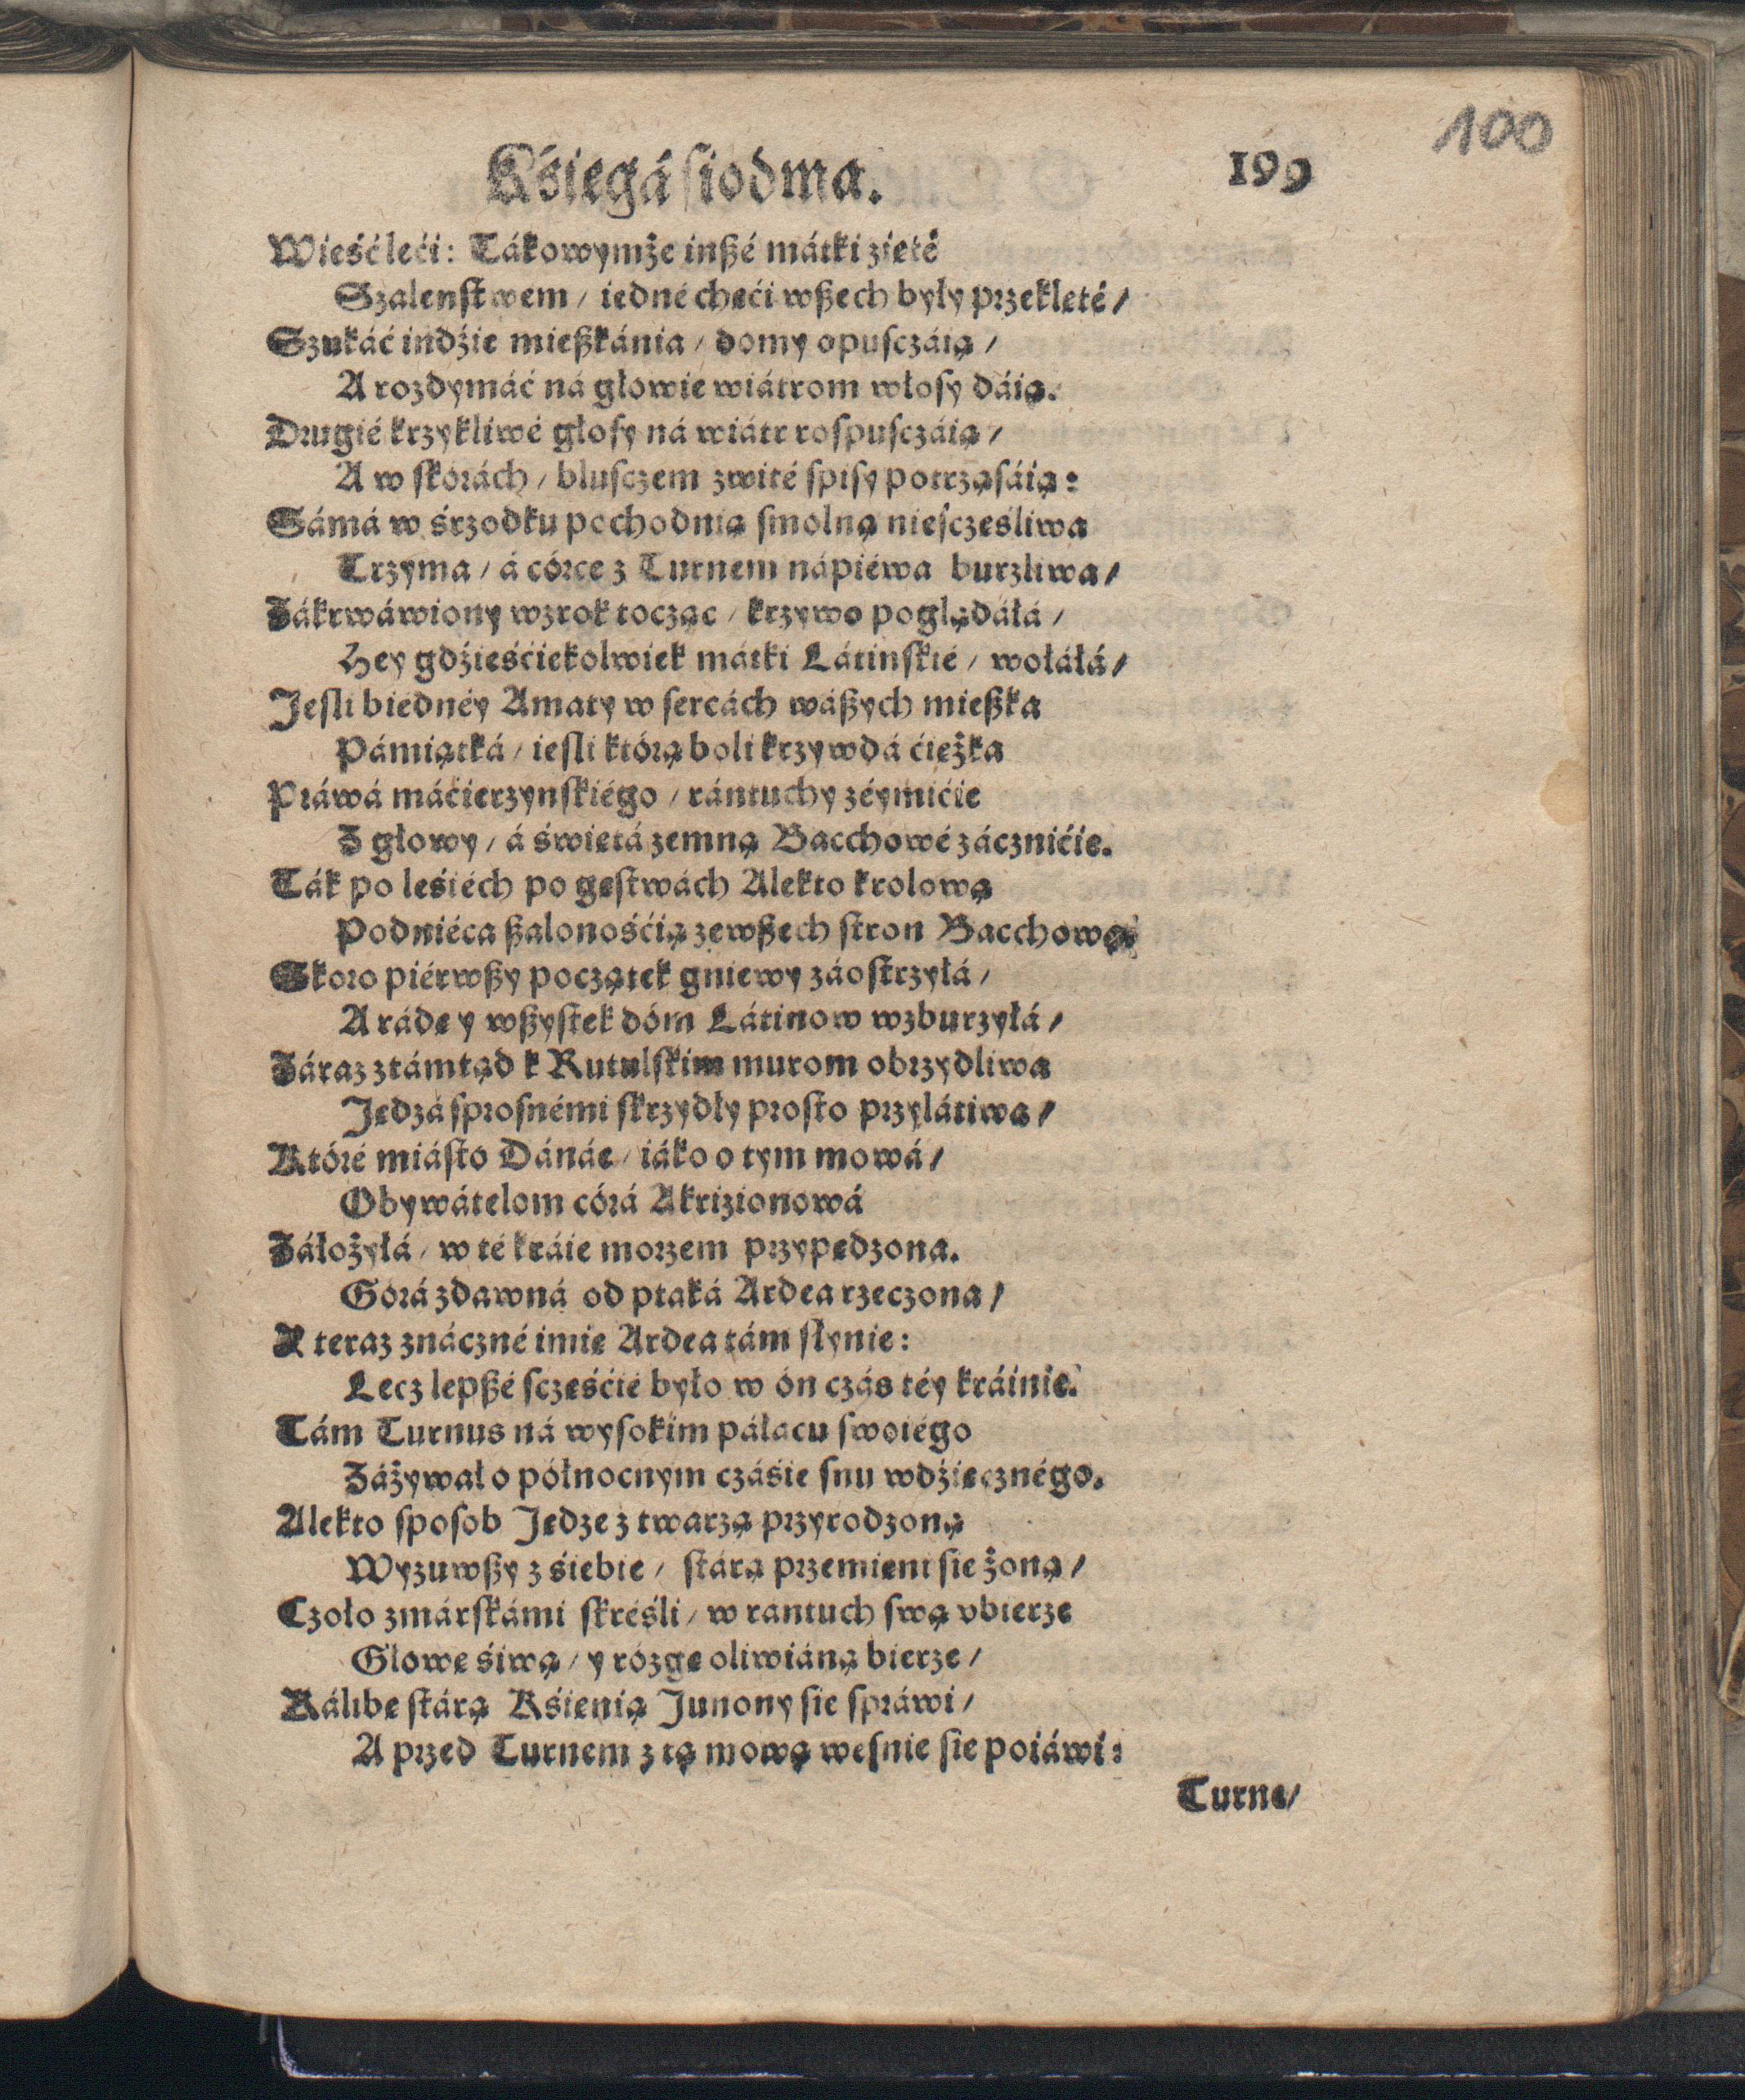 100
Kśięgá siodma. 199
Wieść leći: Tákowymże inßé mátki zięté
Szaleństwem / iedné chęći wßech były przeklęté /
Szukáć indźie mießkánia / domy opusczáią /
A rozdymáć ná głowie wiátrom włosy dáią.
Drugié krzykliwé głosy ná wiátr rospusczáią /
A w skórách / blusczem zwité spisy potrząsáią:
Sámá w śrzodku pochodnią smolną niesczęśliwa
Trzyma / á córce z Turnem nápiéwa burzliwa /
Zákrwáwiony wzrok tocząc / krzywo poglądáłá /
Hey gdźieśćiekolwiek mátki Látinskié / wołáłá /
Jesli biédnéy Amaty w sercách wáßych mießka
Pámiątká / iesli którą boli krzywdá ćięßka
Práwá máćierzynskiégo / rántuchy zéymićie
Z głowy / á świętá zemną Bacchowé zácznićie.
Ták po leśiéch po gęstwách Alekto krolową
Podniéca ßalonośćią zewßech stron Bacchową.
Skoro piérwßy początek gniewy záostrzyłá /
A rádę y wßystek dóm Látinow wzburzyłá /
Záraz ztámtąd k Rutulskim murom obrzydliwa
Jędzá sprosnémi skrzydły prosto przylátiwa /
Któré miásto Dánáe / iáko o tym mowá /
Obywátelom córá Akrizionowá
Záłożyłá / w té kráie morzem przypędzona.
Górá zdawná od ptaká Ardea rzeczona /
Y teraz znáczné imię Ardea tám słynie:
Lecz lepßé sczęśćié było w ón czás téy kráinie.
Tám Turnus ná wysokim páłacu swoiégo
Záżywał o północnym czáśie snu wdźięcznégo.
Alekto sposob Jędze z twarzą przyrodzoną
Wyzuwßy z śiebie / stárą przemieni się żoną /
Czoło zmárskámi skréśli / w rantuch swą vbierze
Głowę śiwą / y rózgę oliwiáną bierze /
Kálibe stárą Kśienią Junony się spráwi /
A przed Turnem z tą mową weśnie się poiáwi:
Turne /